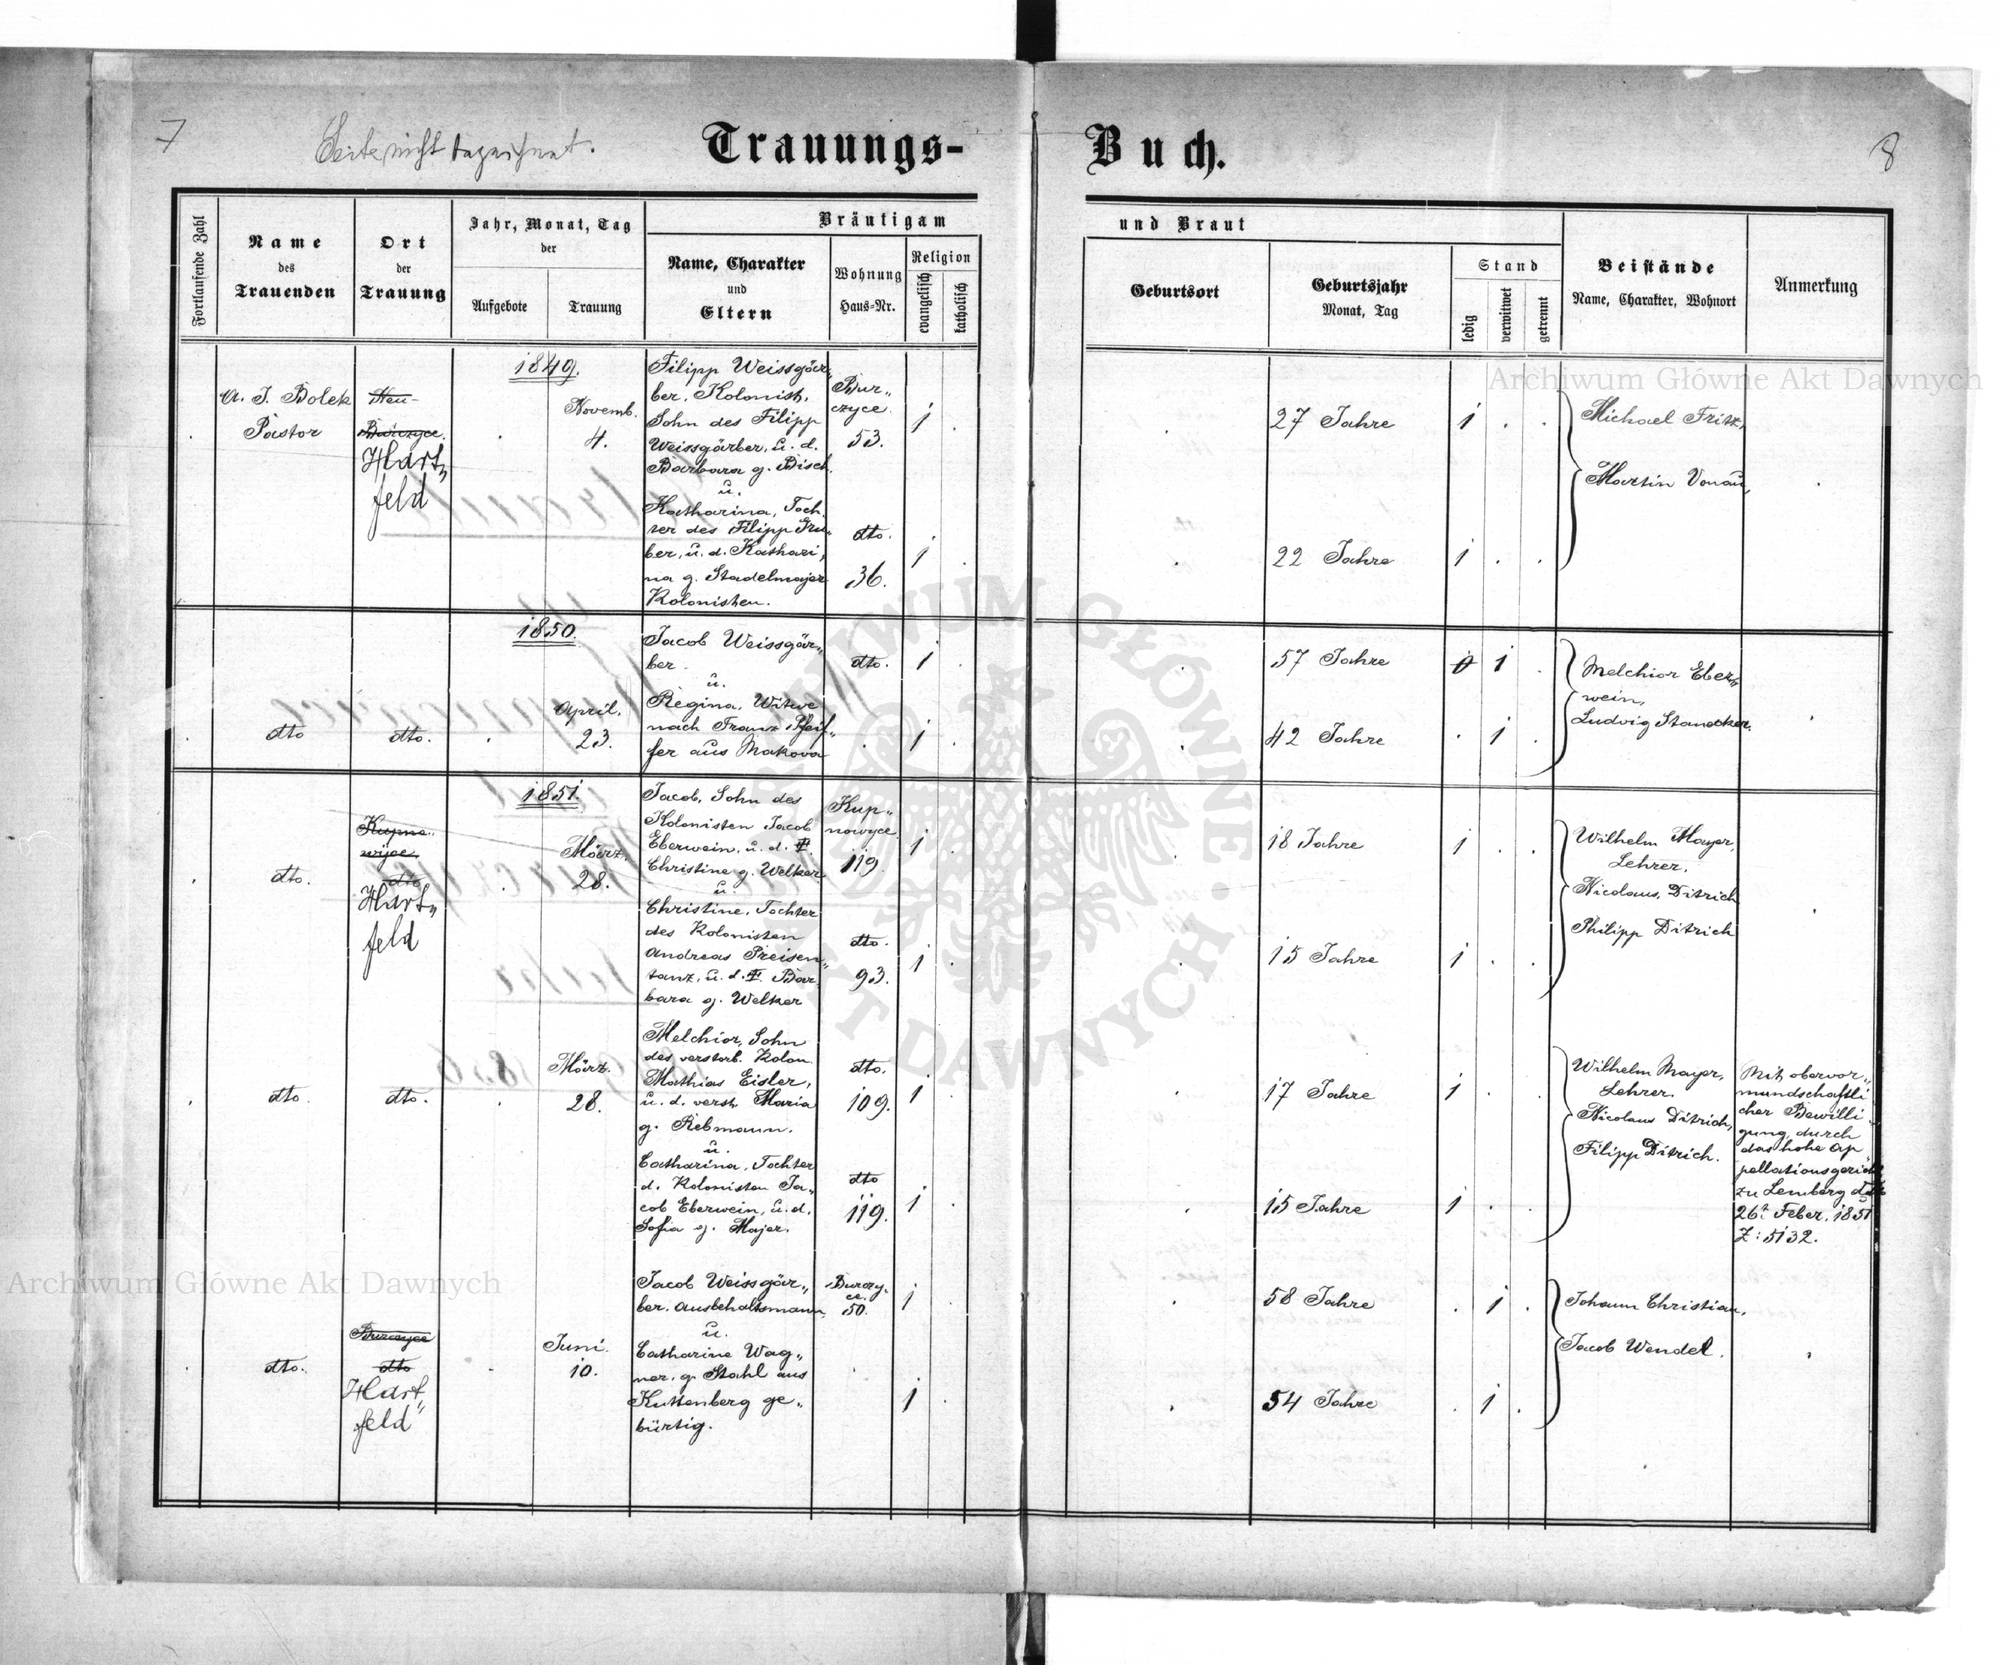 7
Seite nicht bezeichnet.
Trauungs-Buch.
8
Fortlaufende Zahl
Name
des
Trauenden
Ort
der
Trauung
Jahr, Monat, Tag
der
Aufgebote
Trauung
Bräutigam
und Braut
Name, Charakter
und
Eltern
Wohnung
Haus-Nr.
Religion
evangelisch
katholisch
Geburtsort
Geburtsjahr
Monat, Tag
Stand
ledig
verwitwet
getrennt
Beistände
Name, Charakter, Wohnort
Anmerkung
1849.
A. J. Bolek
Pastor
Neu-
Burczyce.
Hart„
feld
Novemb.
4.
Filipp Weissgär„
ber, Kolonist,
Sohn des Filipp
Weissgärber, u. d.
Barbara g. Bisch
u.
Katharina, Toch.
ter des Filipp Gru„
ber, u. d. Kathari„
na g. Stadelmajer
Kolonisten.
Bur„
czyce.
53.
dto.
36.
1
1
27 Jahre
1
22 Jahre
1
Michael Fritz,
Martin Vonau,
1850.
dto
dto.
April.
23.
Jacob Weissgär„
ber.
u.
Regina, Witwe
nach Franz Pfeif„
fer aus Makova
dto.
1
1
57 Jahre
1
42 Jahre
1
Melchior Eber„
wein,
Ludvig Stanecker.
1851.
dto.
Kupno„
wyce
dto
Hart„
feld
März.
28.
Jacob, Sohn des
Kolonisten Jacob
Eberwein, u. d. †
Christine g. Welker
u.
Christine, Tochter
des Kolonisten
Andreas Preisen„
tanz, u. d. †. Bar„
bara g. Welker
Kup„
nowyce
119.
dto.
93.
1
1
18 Jahre
1
15 Jahre
1
Wilhelm Mayer,
Lehrer.
Nicolaus, Ditrich
Philipp Ditrich
dto.
dto.
März.
28.
Melchior, Sohn
des verstorb. Kolon
Mathias Eisler,
u. d. verst. Maria
g. Rebmann.
u.
Catharina, Tochter
d. Kolonisten Ja„
cob Eberwein, u. d.
Sofia g. Majer.
dto.
109.
dto
119.
1
1
17 Jahre
1
15 Jahre
1
Wilhelm Mayer,
Lehrer.
Nicolaus Ditrich,
Filipp Ditrich.
Mit obervor„
mundschaftli
cher Bewilli
gung, durch
das hohe Ap
pellationsgericht
zu Lemberg dto
26t Feber. 1851
Z: 5132.
dto.
Burczyce
dto
Hart„
feld
Juni.
10.
Jacob Weissgär„
ber. Ausbehaltsmann
u.
Catharine Wag„
ner, g. Stahl aus
Kuttenberg ge„
bürtig.
Burczy„
ce.
50.
1
1
58 Jahre
1
54 Jahre
1
Johann Christian,
Jacob Wendel.
Archiwum Główne Akt Dawnych
Archiwum Główne Akt Dawnych
ARCHIWUM GŁÓWNE AKT DAWNYCH